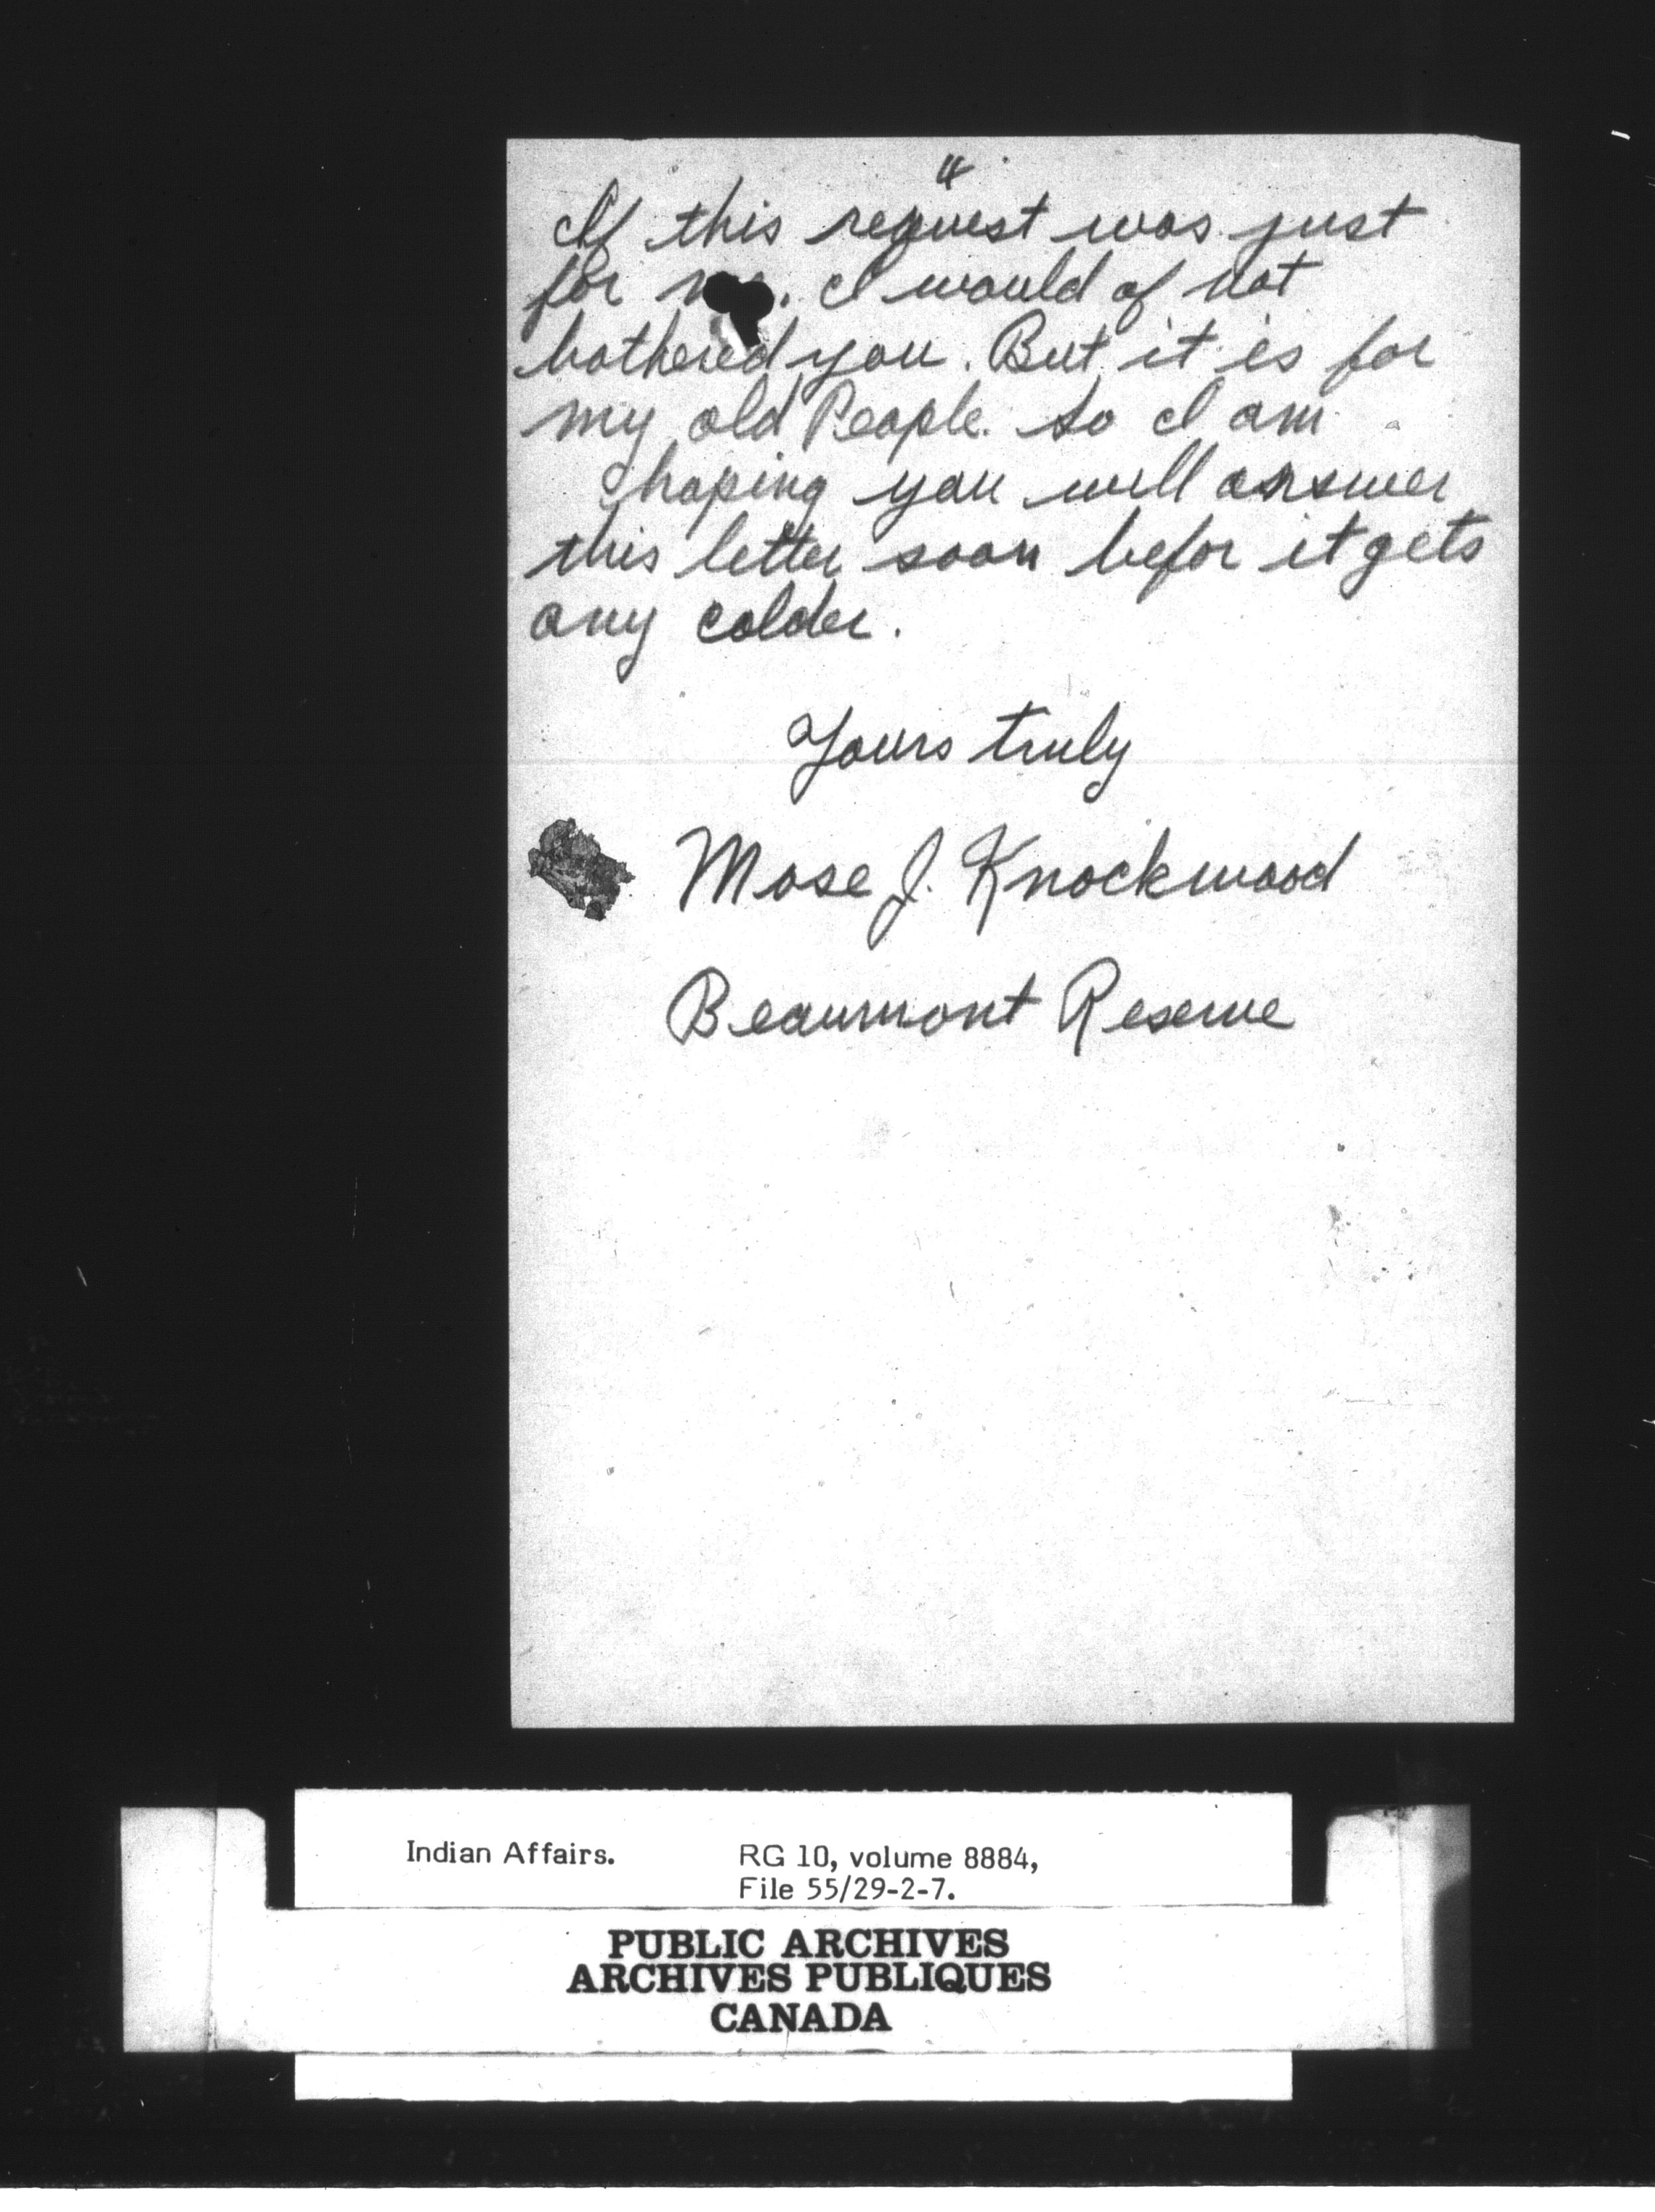 4
If this request was just
for me. I would of not
bothered you. But it is for
my old People. so I am
hoping you will answer
this letter soon befor it gets
any colder.
Yours truly
Mose J. Knockwood
Beaumont Reserve
Indian Affairs. RG 10, volume 8884,
File 55/29-2-7.
PUBLIC ARCHIVES
ARCHIVES PUBLIQUES
CANADA